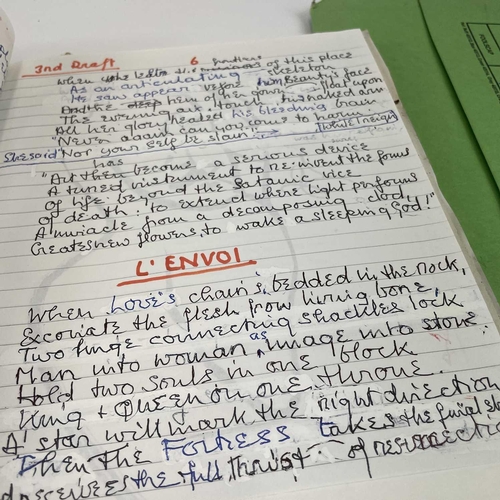 3rd Draft 6
When the of this place
As an articulating skeleton
He saw appear before him Beauty's face
And the deep hem of her gown float upon
The evening air touch his harled arm
All her glory healed his bleeding brain
"Never again can you come to harm
She said "Nor your self be slain
has
"Art then become a serious device
A tuned instrument to re-invent the forms
Of life. beyond the Satanic vice
Of death. To extend where light performs
A miracle from a decomposing clod,
Creates new flowers to wake a sleeping God!"
L'ENVOI
When Love's chain is bedded in the rock,
Excoriate the flesh from living bone,
Two huge connecting shackles lock
Man into woman as image into stone.
Hold two souls in one block
King + Queen on one throne.
A star will mark the right direction
Then the Fortress takes the
receives the full thrust of